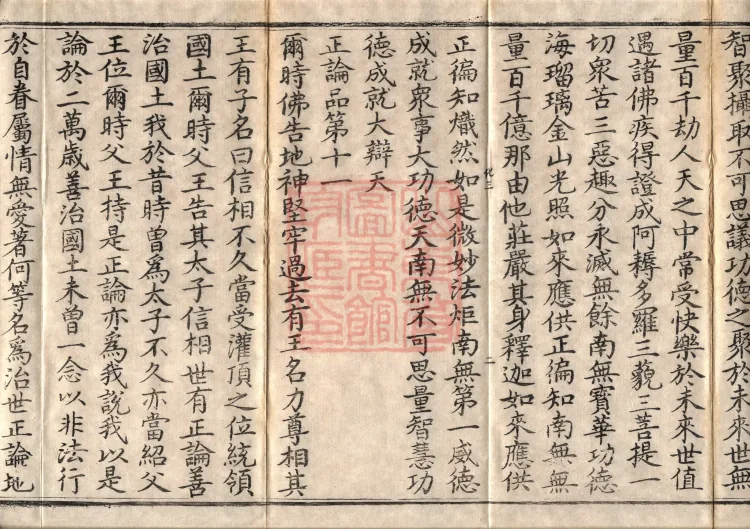 智聚攝取不可思議功德之聚於未來世無
量百千劫人天之中常受快樂於未來世值
遇諸佛疾得證成阿耨多羅三藐三菩提一
切眾苦三惡趣分永滅無餘南無寶華功德
海瑠璃金山光照如來應供正徧知南無無
量百千億那由他莊嚴其身釋迦如來應供
正徧知熾然如是微妙法炬南無第一威德
成就眾事大功德天南無不可思量智慧功
德成就大辯天
正論品第十一
爾時佛告地神堅牢過去有王名力尊相其
王有子名曰信相不久當受灌頂之位統領
國土爾時父王告其太子信相世有正論善
治國土我於昔時曾為太子不久亦當紹父
王位爾時父王持是正論亦為我說我以是
論於二萬歲善治國土未曾一念以非法行
於自眷屬情無愛著何等名為治世正論地